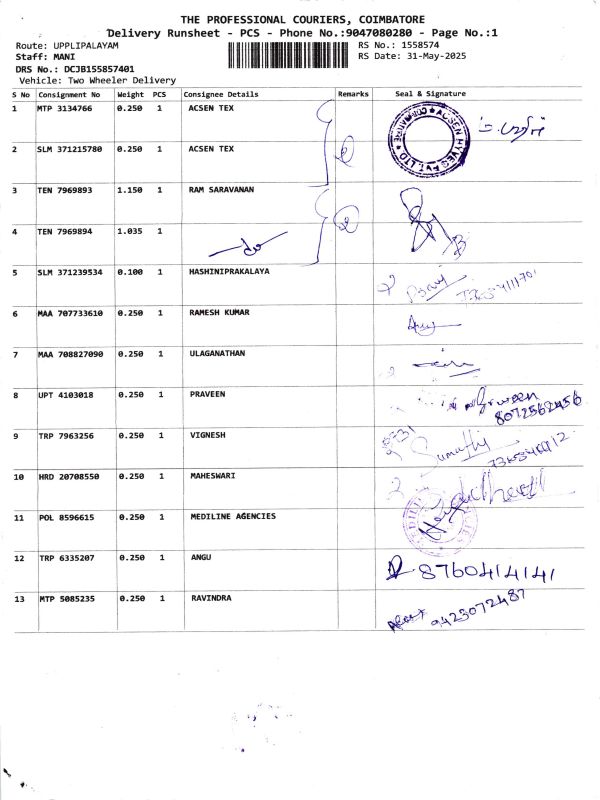 THE PROFESSIONAL COURIERS, COIMBATORE
Delivery Runsheet - PCS - Phone No.:9047080280 - Page No.:1
Route: UPPLIPALAYAM
RS No.: 1558574
Staff: MANI
RS Date: 31-May-2025
DRS No.: DCJB155857401
Vehicle: Two Wheeler Delivery
S No Consignment No Weight PCS Consignee Details Remarks Seal & Signature
1 MTP 3134766 0.250 1 ACSEN TEX
ACSEN HYVEG PVT. LTD
2 SLM 371215780 0.250 1 ACSEN TEX
3 TEN 7969893 1.150 1 RAM SARAVANAN
4 TEN 7969894 1.035 1
5 SLM 371239534 0.100 1 HASHINIPRAKALAYA
6 MAA 707733610 0.250 1 RAMESH KUMAR
7 MAA 708827090 0.250 1 ULAGANATHAN
8 UPT 4103018 0.250 1 PRAVEEN
8072562456
9 TRP 7963256 0.250 1 VIGNESH Sumathi
10 HRD 20708550 0.250 1 MAHESWARI
11 POL 8596615 0.250 1 MEDILINE AGENCIES
12 TRP 6335207 0.250 1 ANGU 8760414141
13 MTP 5085235 0.250 1 RAVINDRA 9423072487